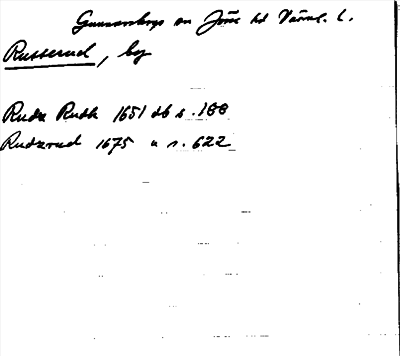 Gunnarskogs sn Jösse hd Värml. l.
Russerud, by
Rudz Rudh 1651 db s. 188
Rudzrud 1675 u s. 622